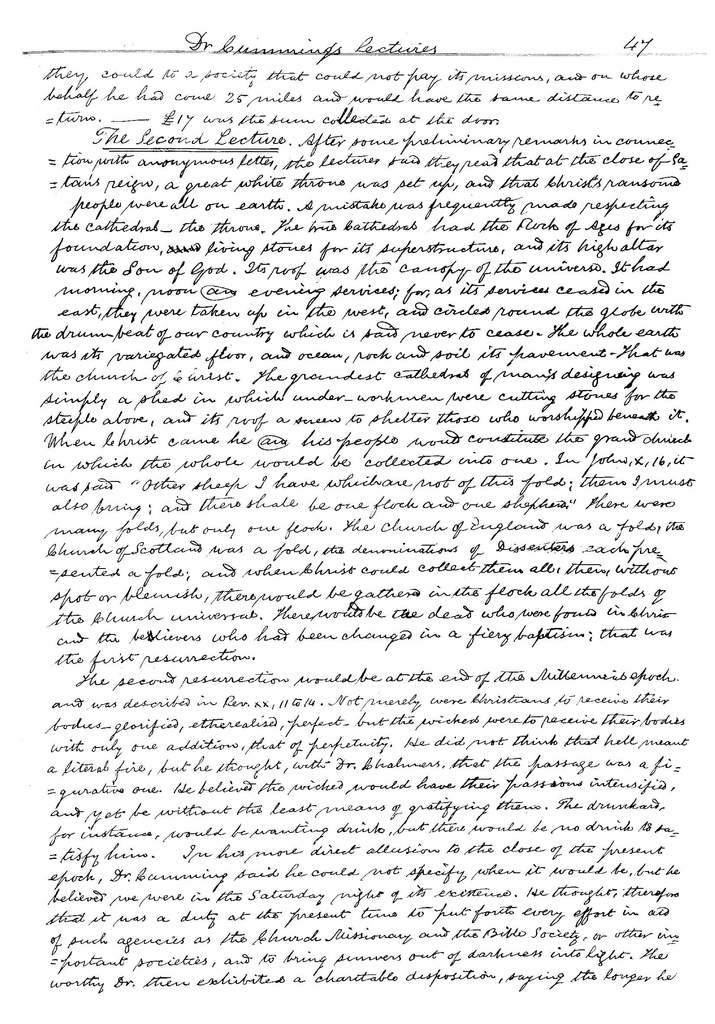 Dr Cummings lectures 47
they, could to a society that could not pay its missions, and on whose
behalf he had come 25 miles and would have the same distance to re-
=turn. — £17 was the sum collected at the door.
The Second Lecture. After some preliminary remarks in connec-
=tion with anonymous letter, the lecturer said they read that at the close of Sa-
=tan's reign, a great white throne was set up, and that Christ's ransomed
people were all on earth. A mistake was frequently made respecting
the cathedral – the throne. The true Cathedral had the Rock of Ages for its
foundation, living stones for its superstructure, and its high altar
was the Son of God. Its roof was the canopy of the universe. It had
morning, noon and evening services; for, as its services ceased in the
east, they were taken up in the west, and circled round the globe with
the drum beat of our country which is said never to cease. The whole earth
was its variegated floor, and ocean, rock and soil its pavement – That was
the church of Christ. The grandest cathedral of man's designing was
simply a shed in which under-workmen were cutting stones for the
steeple above, and its roof a screen to shelter those who worshipped beneath it.
When Christ came he and his people would constitute the grand church
in which the whole would be collected into one. In John, x, 16, it
was said "Other sheep I have which are not of this fold; them I must
also bring; and there shall be one flock and one shepherd." There were
many folds, but only one flock. The Church of England was a fold, the
Church of Scotland was a fold, the denominations of Dissenters each pre-
=sented a fold; and when Christ could collect them all, then, without
spot or blemish, there would be gathered in the flock all the folds of
the Church universal. There would be the dead who were found in Christ
and the believers who had been changed in a fiery baptism; that was
the first resurrection.
The second resurrection would be at the end of the Millennial epoch
and was described in Rev. xx, 11 to 14. Not merely were Christians to receive their
bodies – glorified, etherealised, perfect – but the wicked were to receive their bodies
with only one addition, that of perpetuity. He did not think that hell meant
a literal fire, but he thought, with Dr. Chalmers, that the passage was a fi-
=gurative one. He believed the wicked would have their passions intensified,
and yet be without the least means of gratifying them. The drunkard,
for instance, would be wanting drink, but there would be no drink to sa-
=tisfy him. In his more direct allusion to the close of the present
epoch, Dr. Cumming said he could not specify when it would be, but he
believed we were in the Saturday night of its existence. He thought, therefore
that it was a duty at the present time to put forth every effort in aid
of such agencies as the Church Missionary and the Bible Society, or other im-
=portant societies, and to bring sinners out of darkness into light. The
worthy Dr. then exhibited a charitable disposition, saying the longer he